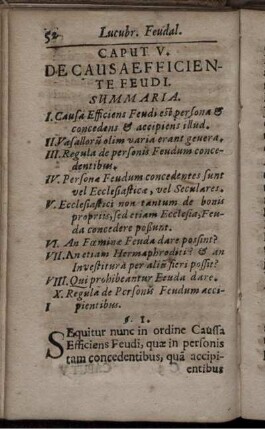 52 Lucubr. Feudal.
CAPUT V.
DE CAUSA EFFICIEN-
TE FEUDI.
SUMMARIA.
I. Causa Efficiens Feudi est persona &
concedens & accipiens illud.
II. Vasallorũ olim varia erant genera.
III. Regula de personis Feudum conce-
dentibus.
IV. Personæ Feudum concedentes sunt
vel Ecclesiasticæ, vel Seculares.
V. Ecclesiastici non tantum de bonis
propriis, sed etiam Ecclesiæ, Feu-
da concedere possunt.
VI. An Fœminæ Feuda dare possint?
VII. An etiam Hermaphroditi? & an
Investitura per aliũ fieri possit?
VIII. Qui prohibeantur Feuda dare.
X. Regula de Personis Feudum acci-
1 pientibus.
§. I.
SEquitur nunc in ordine Caussa
Efficiens Feudi, quæ in personis
tam concedentibus, quã accipi-
entibus